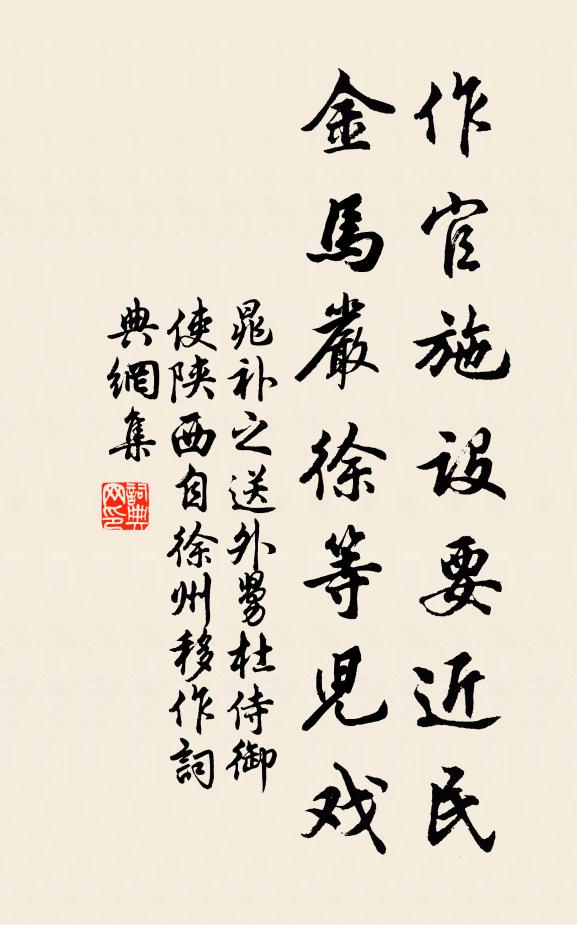 作官施設要近民
金馬嚴徐等児戏
晁补之送外舅杜侍御
使陕西自徐州移作詞
典網集
詞典网印